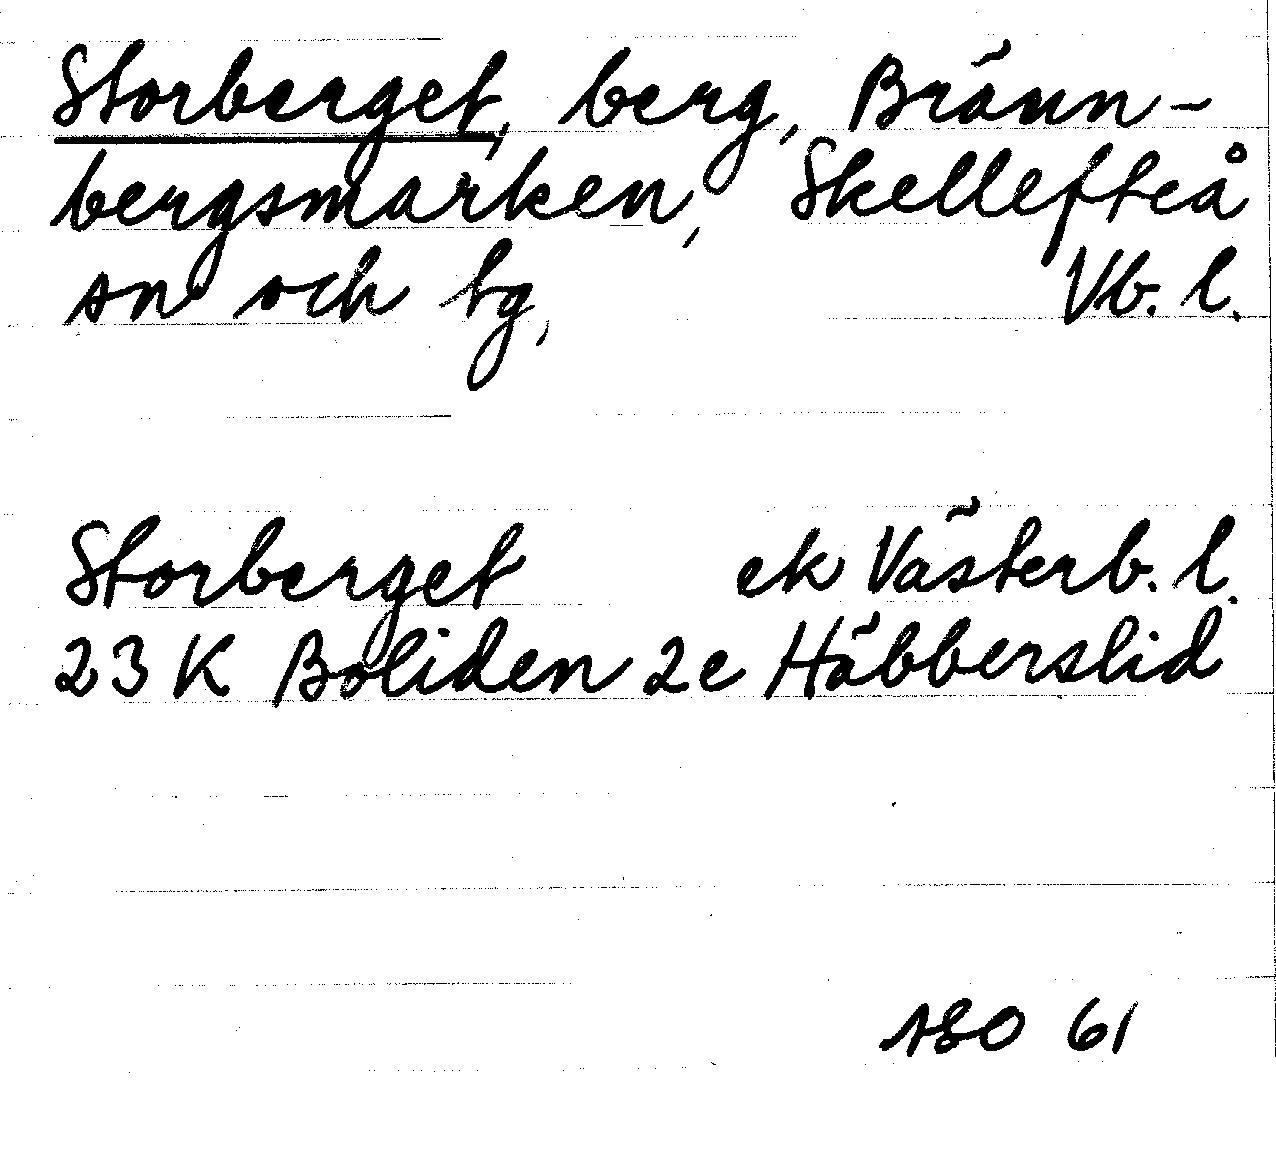 Storberget, berg, Bränn-
bergsmarken, Skellefteå
sn och tg, Vb. l.
Storberget ek Västerb. l.
23 K Boliden 2e Häbberslid
ASO 61